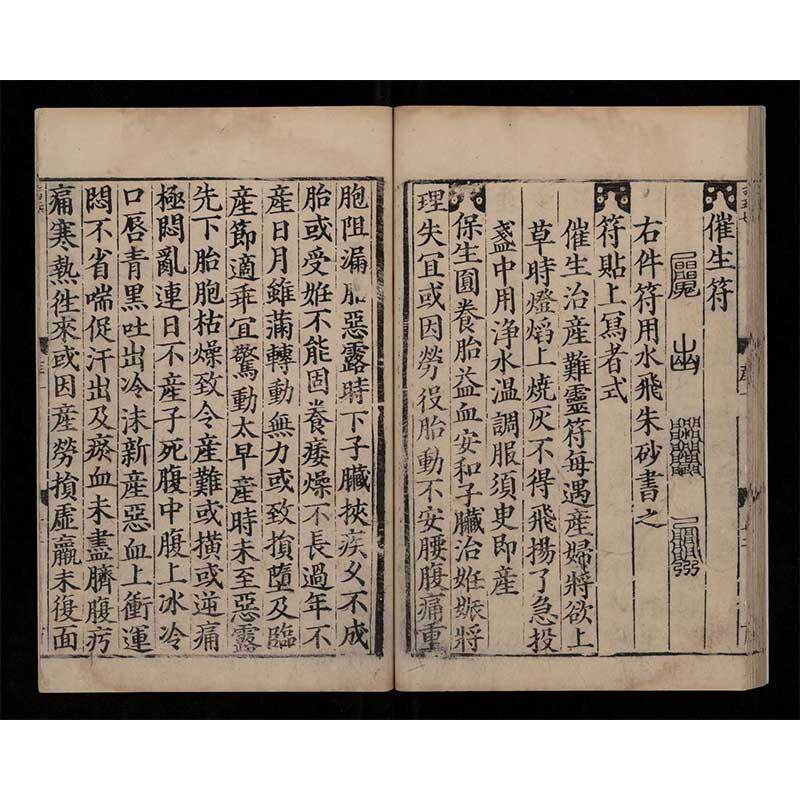 催生符
右件符用水飛朱砂書之
符貼上寫者式
催生治産難靈符每遇産婦將欲上
草時燈焰上燒灰不得飛揚了急投
盞中用淨水温調服須臾即産
保生圓養胎益血安和子臟治姙娠將
理失宜或因勞役胎動不安腰腹痛重
胞阻漏胎惡露時下子臟挾疾久不成
胎或受姙不能固養痿燥不長過年不
産日月雖滿轉動無力或致損墮及臨
産節適乖宜驚動太早産時未至惡露
先下胎胞枯燥致令産難或橫或逆痛
極悶亂連日不産子死腹中腹上冰冷
口唇青黑吐出冷沫新産惡血上衝運
悶不省喘促汗出及瘀血未盡臍腹㽲
痛寒熱徃來或因産勞損虛羸未復面